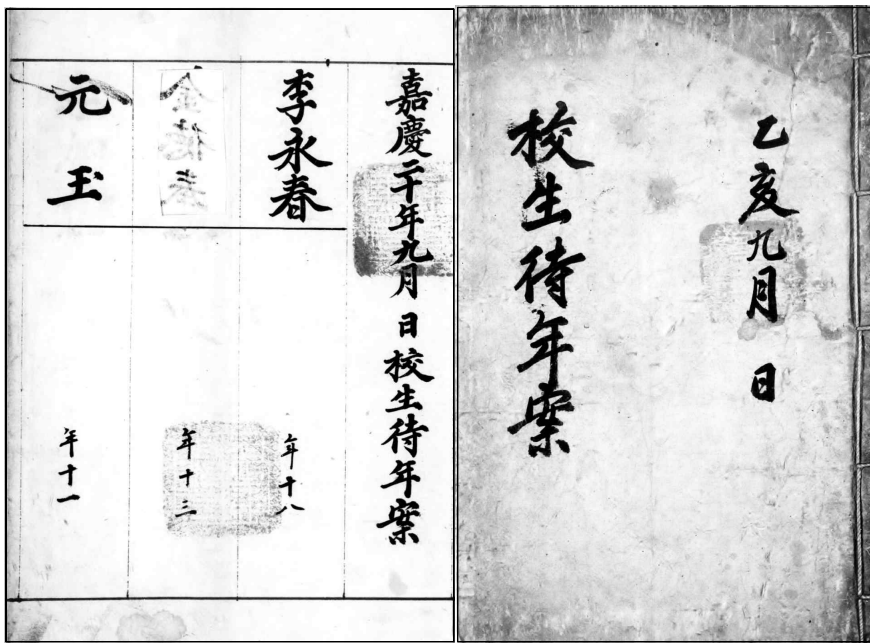 乙亥九月 日
校生待年案
嘉慶二十年九月 日校生待年案
李永春 年十八
年十三
元玉 年十一